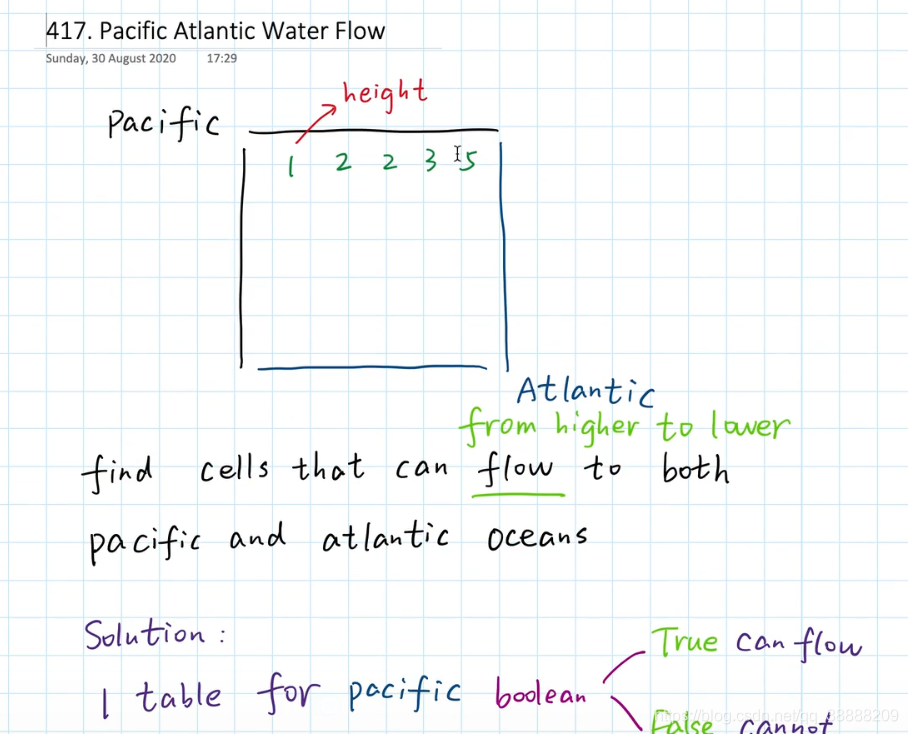 417. Pacific Atlantic Water Flow
Sunday, 30 August 2020 17:29
height
Pacific
1 2 2 3 5
Atlantic
from higher to lower
find cells that can flow to both
pacific and atlantic oceans
Solution :
True can flow
1 table for pacific boolean
False cannot